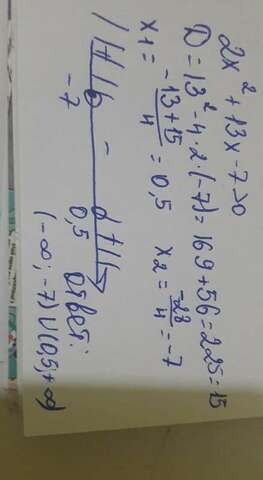 2x² + 13x - 7 > 0
D = 13² - 4·2·(-7) = 169 + 56 = 225 = 15
x₁ = (-13 + 15)/4 = 0,5 x₂ = -28/4 = -7
+ - +
-7 0,5
ответ:
(-∞; -7) ∪ (0,5; +∞)